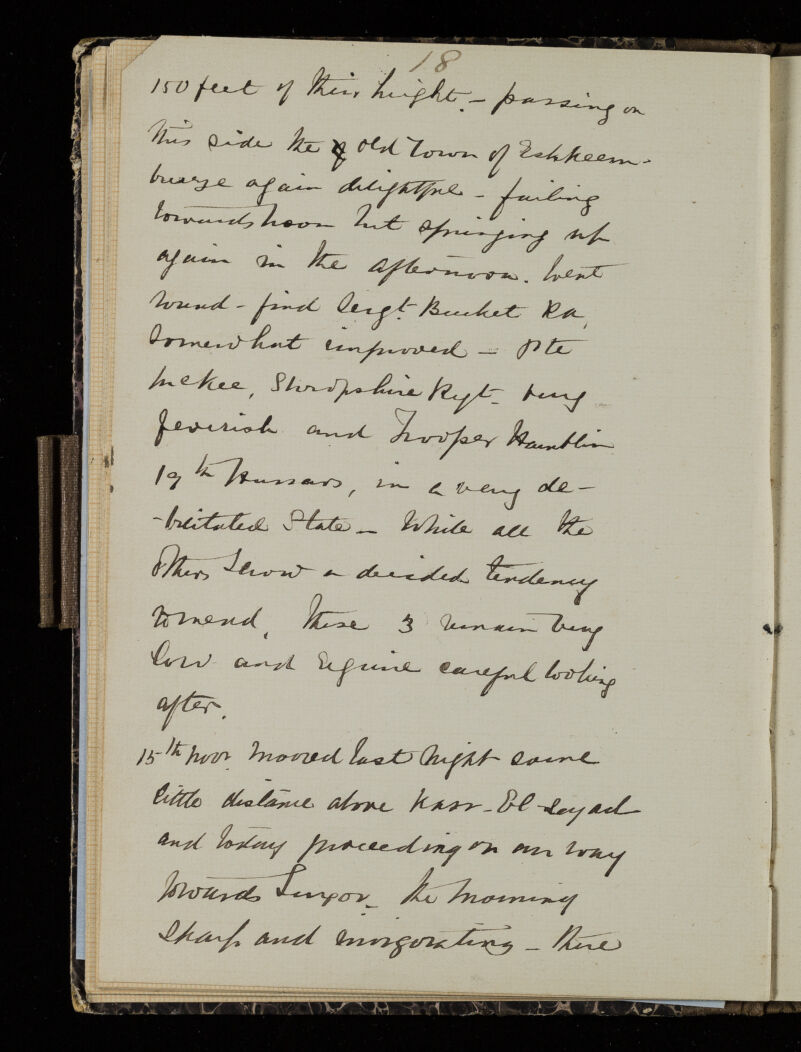 18
150 feet of their height. – passing on
this side the old town of Eshkeem –
breeze again delightful – failing
towards noon but springing up
again in the afternoon. Went
round – find Sergt. Bucket RA,
somewhat improved – Pte
McKee, Shropshire Regt. very
feverish and Trooper Hamblin
19th Hussars, in a very de-
-bilitated State – While all the
others show a decided tendency
to mend, these 3 remain very
low and require careful looking
after.
15th Novr. Moored last night some
little distance above Kasr-El-Syad
and today proceeding on our way
towards Luxor – the morning
sharp and invigorating – there